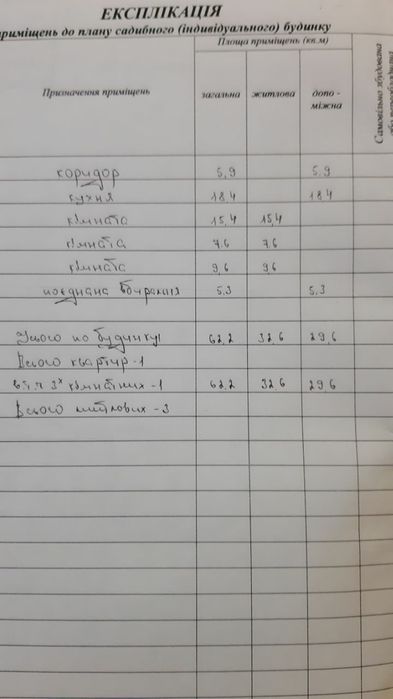 ЕКСПЛІКАЦІЯ
приміщень до плану садибного (індивідуального) будинку
Призначення приміщень
Площа приміщень (кв.м)
загальна житлова допо-
міжна
Самовільно збудована
коридор 5,9 5,9
кухня 18,4 18,4
кімната 15,4 15,4
кімната 7.6 7.6
кімната 9,6 9,6
поєднана вбиральня 5.3 5.3
Усього по будинку 62,2 32,6 29,6
Всього квартир - 1
в т.ч 3х кімнатних - 1 62.2 32.6 29.6
Всього житлових - 3